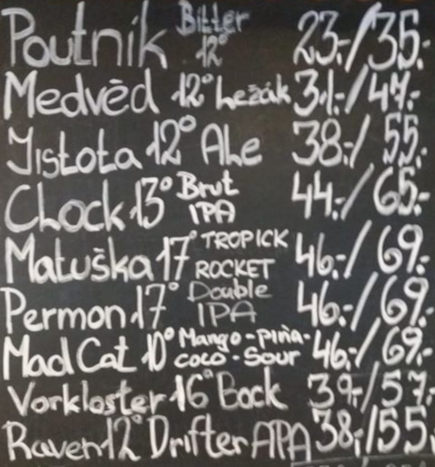 Poutník Bitter 12° 23.-/35.-
Medvěd 12° Ležák 31.-/47.-
Jistota 12° Ale 38.-/55.-
Clock 13° Brut IPA 44.-/65.-
Matuška 17° TROPICK ROCKET 46.-/69.-
Permon 17° Double IPA 46.-/69.-
Mad Cat 10° Mango-Piña-coco-Sour 46.-/69.-
Vorkloster 16° Bock 39.-/57.-
Raven 12° Drifter APA 38.-/55.-